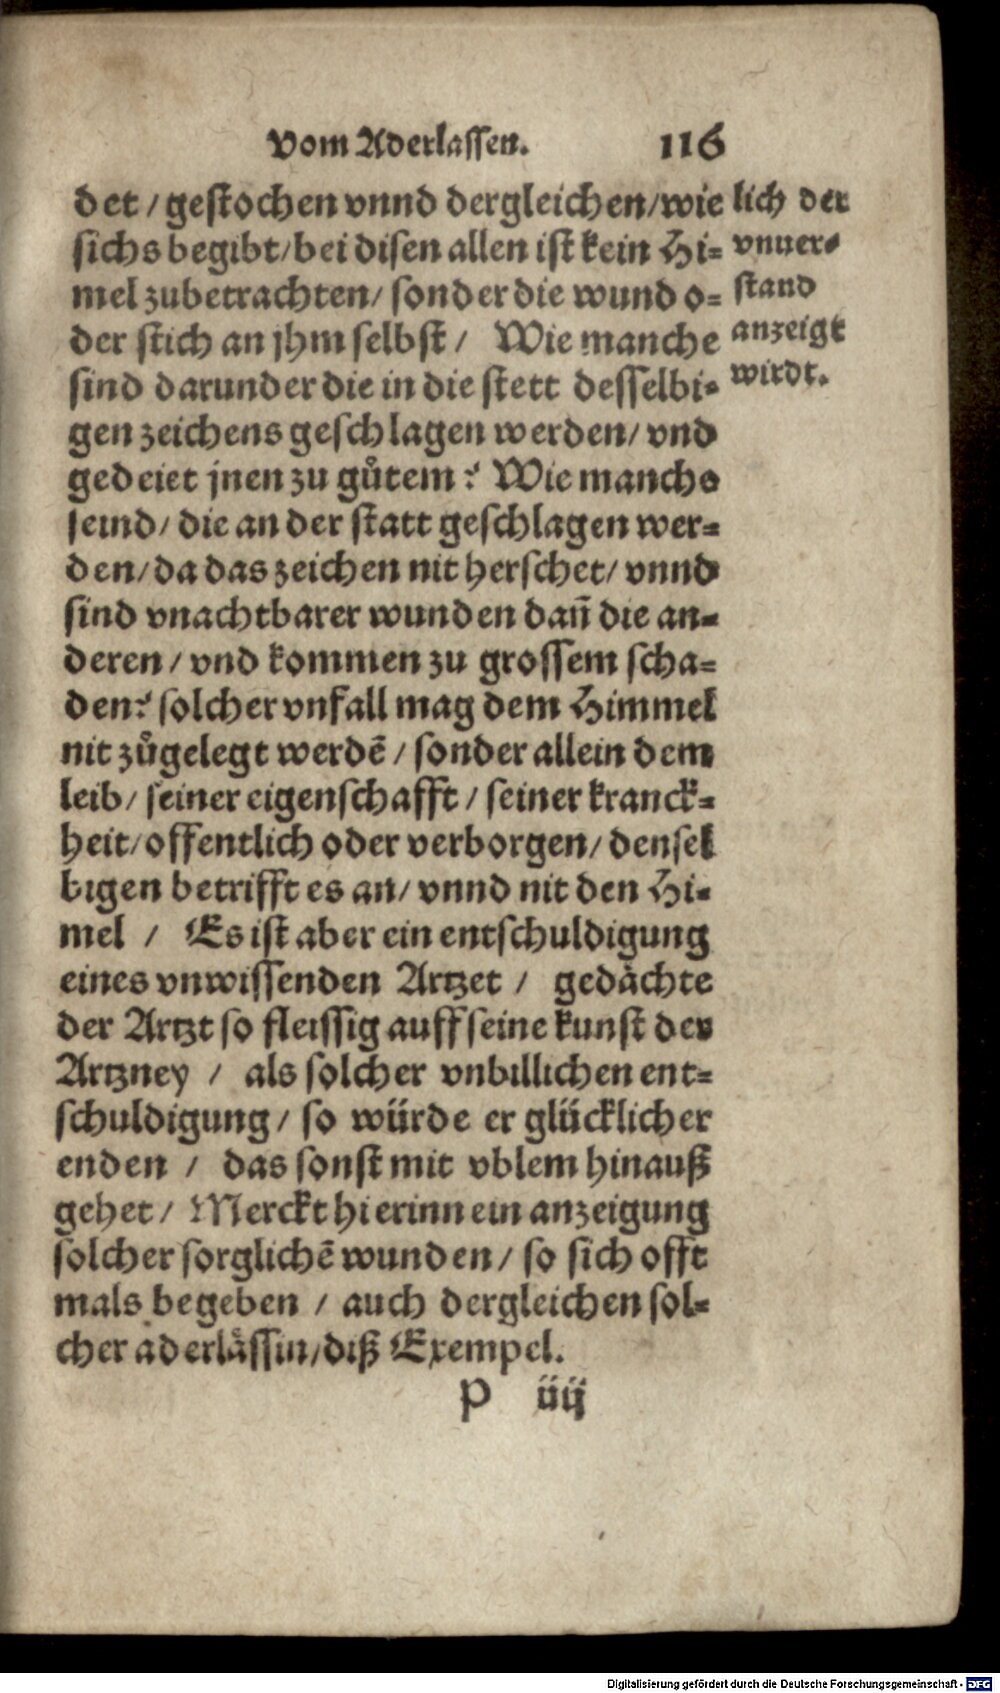 Vom Aderlassen. 116
det / gestochen vnnd dergleichen / wie
sichs begibt / bei disen allen ist kein Hi-
mel zubetrachten / sonder die wund o-
der stich an jhm selbst / Wie manche
sind darunder die in die stett desselbi-
gen zeichens geschlagen werden / vnd
gedeiet jnen zu gůtem? Wie manche
seind / die an der statt geschlagen wer-
den / da das zeichen nit herschet / vnnd
sind vnachtbarer wunden dañ die an-
deren / vnd kommen zu grossem scha-
den? solcher vnfall mag dem Himmel
nit zůgelegt werdē / sonder allein dem
leib / seiner eigenschafft / seiner kranck-
heit / offentlich oder verborgen / densel
bigen betrifft es an / vnnd nit den Hi-
mel / Es ist aber ein entschuldigung
eines vnwissenden Artzet / gedächte
der Artzt so fleissig auff seine kunst der
Artzney / als solcher vnbillichen ent-
schuldigung / so würde er glücklicher
enden / das sonst mit vblem hinauß
gehet / Merckt hierinn ein anzeigung
solcher sorglichē wunden / so sich offt
mals begeben / auch dergleichen sol-
cher aderlässin / diß Exempel.
P iiij
lich der
vnuer-
stand
anzeigt
wirdt.
Digitalisierung gefördert durch die Deutsche Forschungsgemeinschaft - DFG